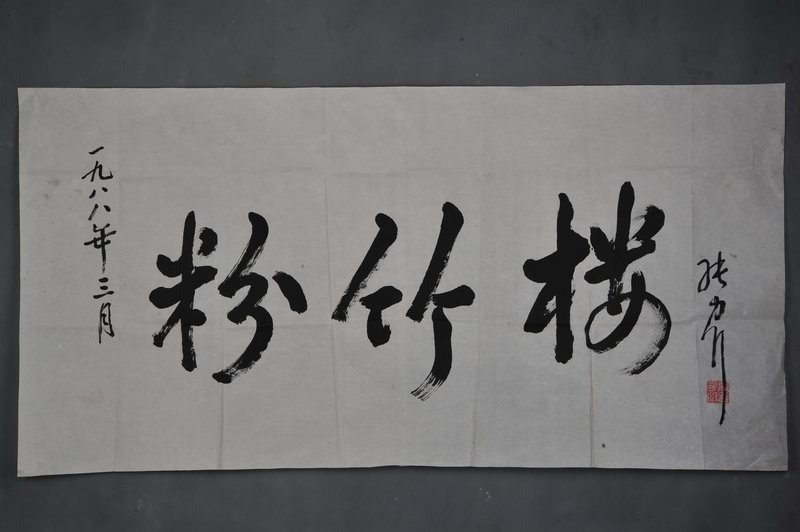 一九八八年三月
粉竹楼
张